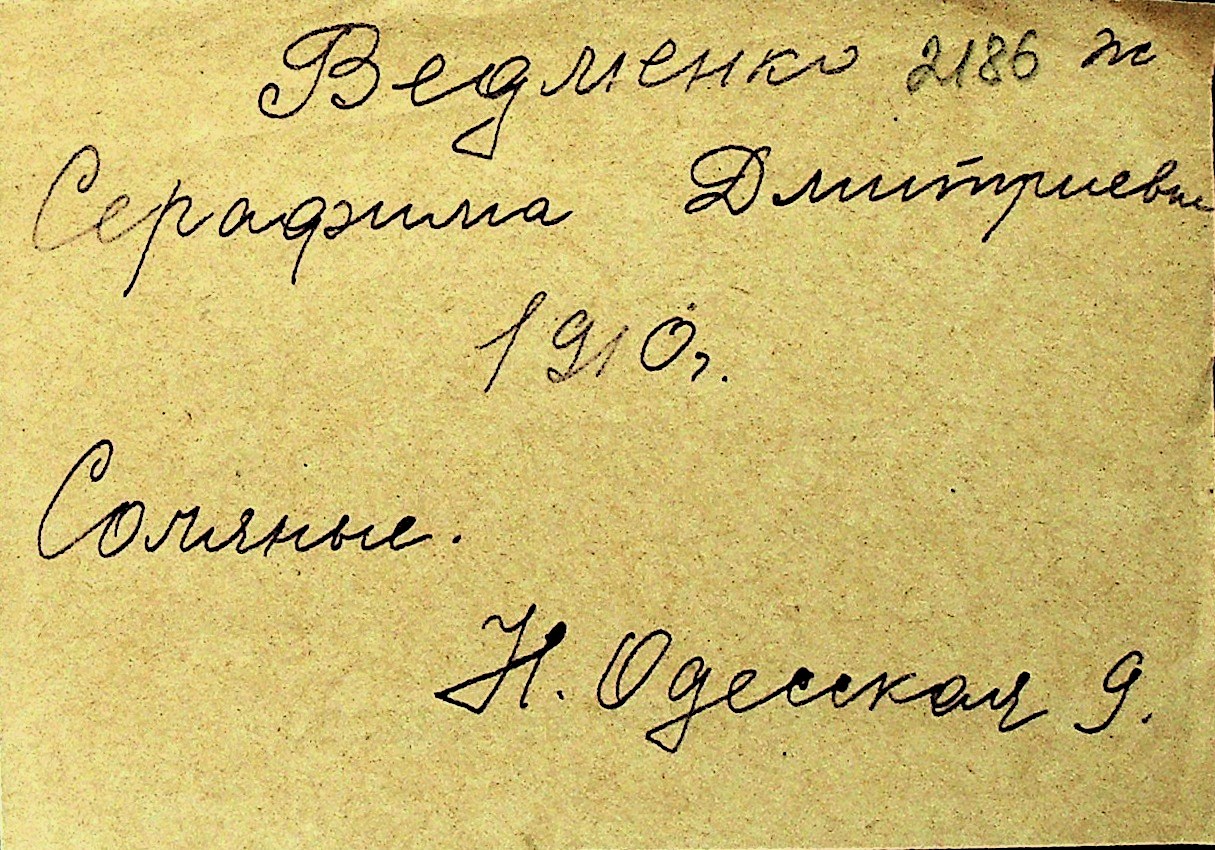 Ведменко 2186 ж
Серафима Дмитриевна
1910г.
Соляные.
Н. Одесская 9.